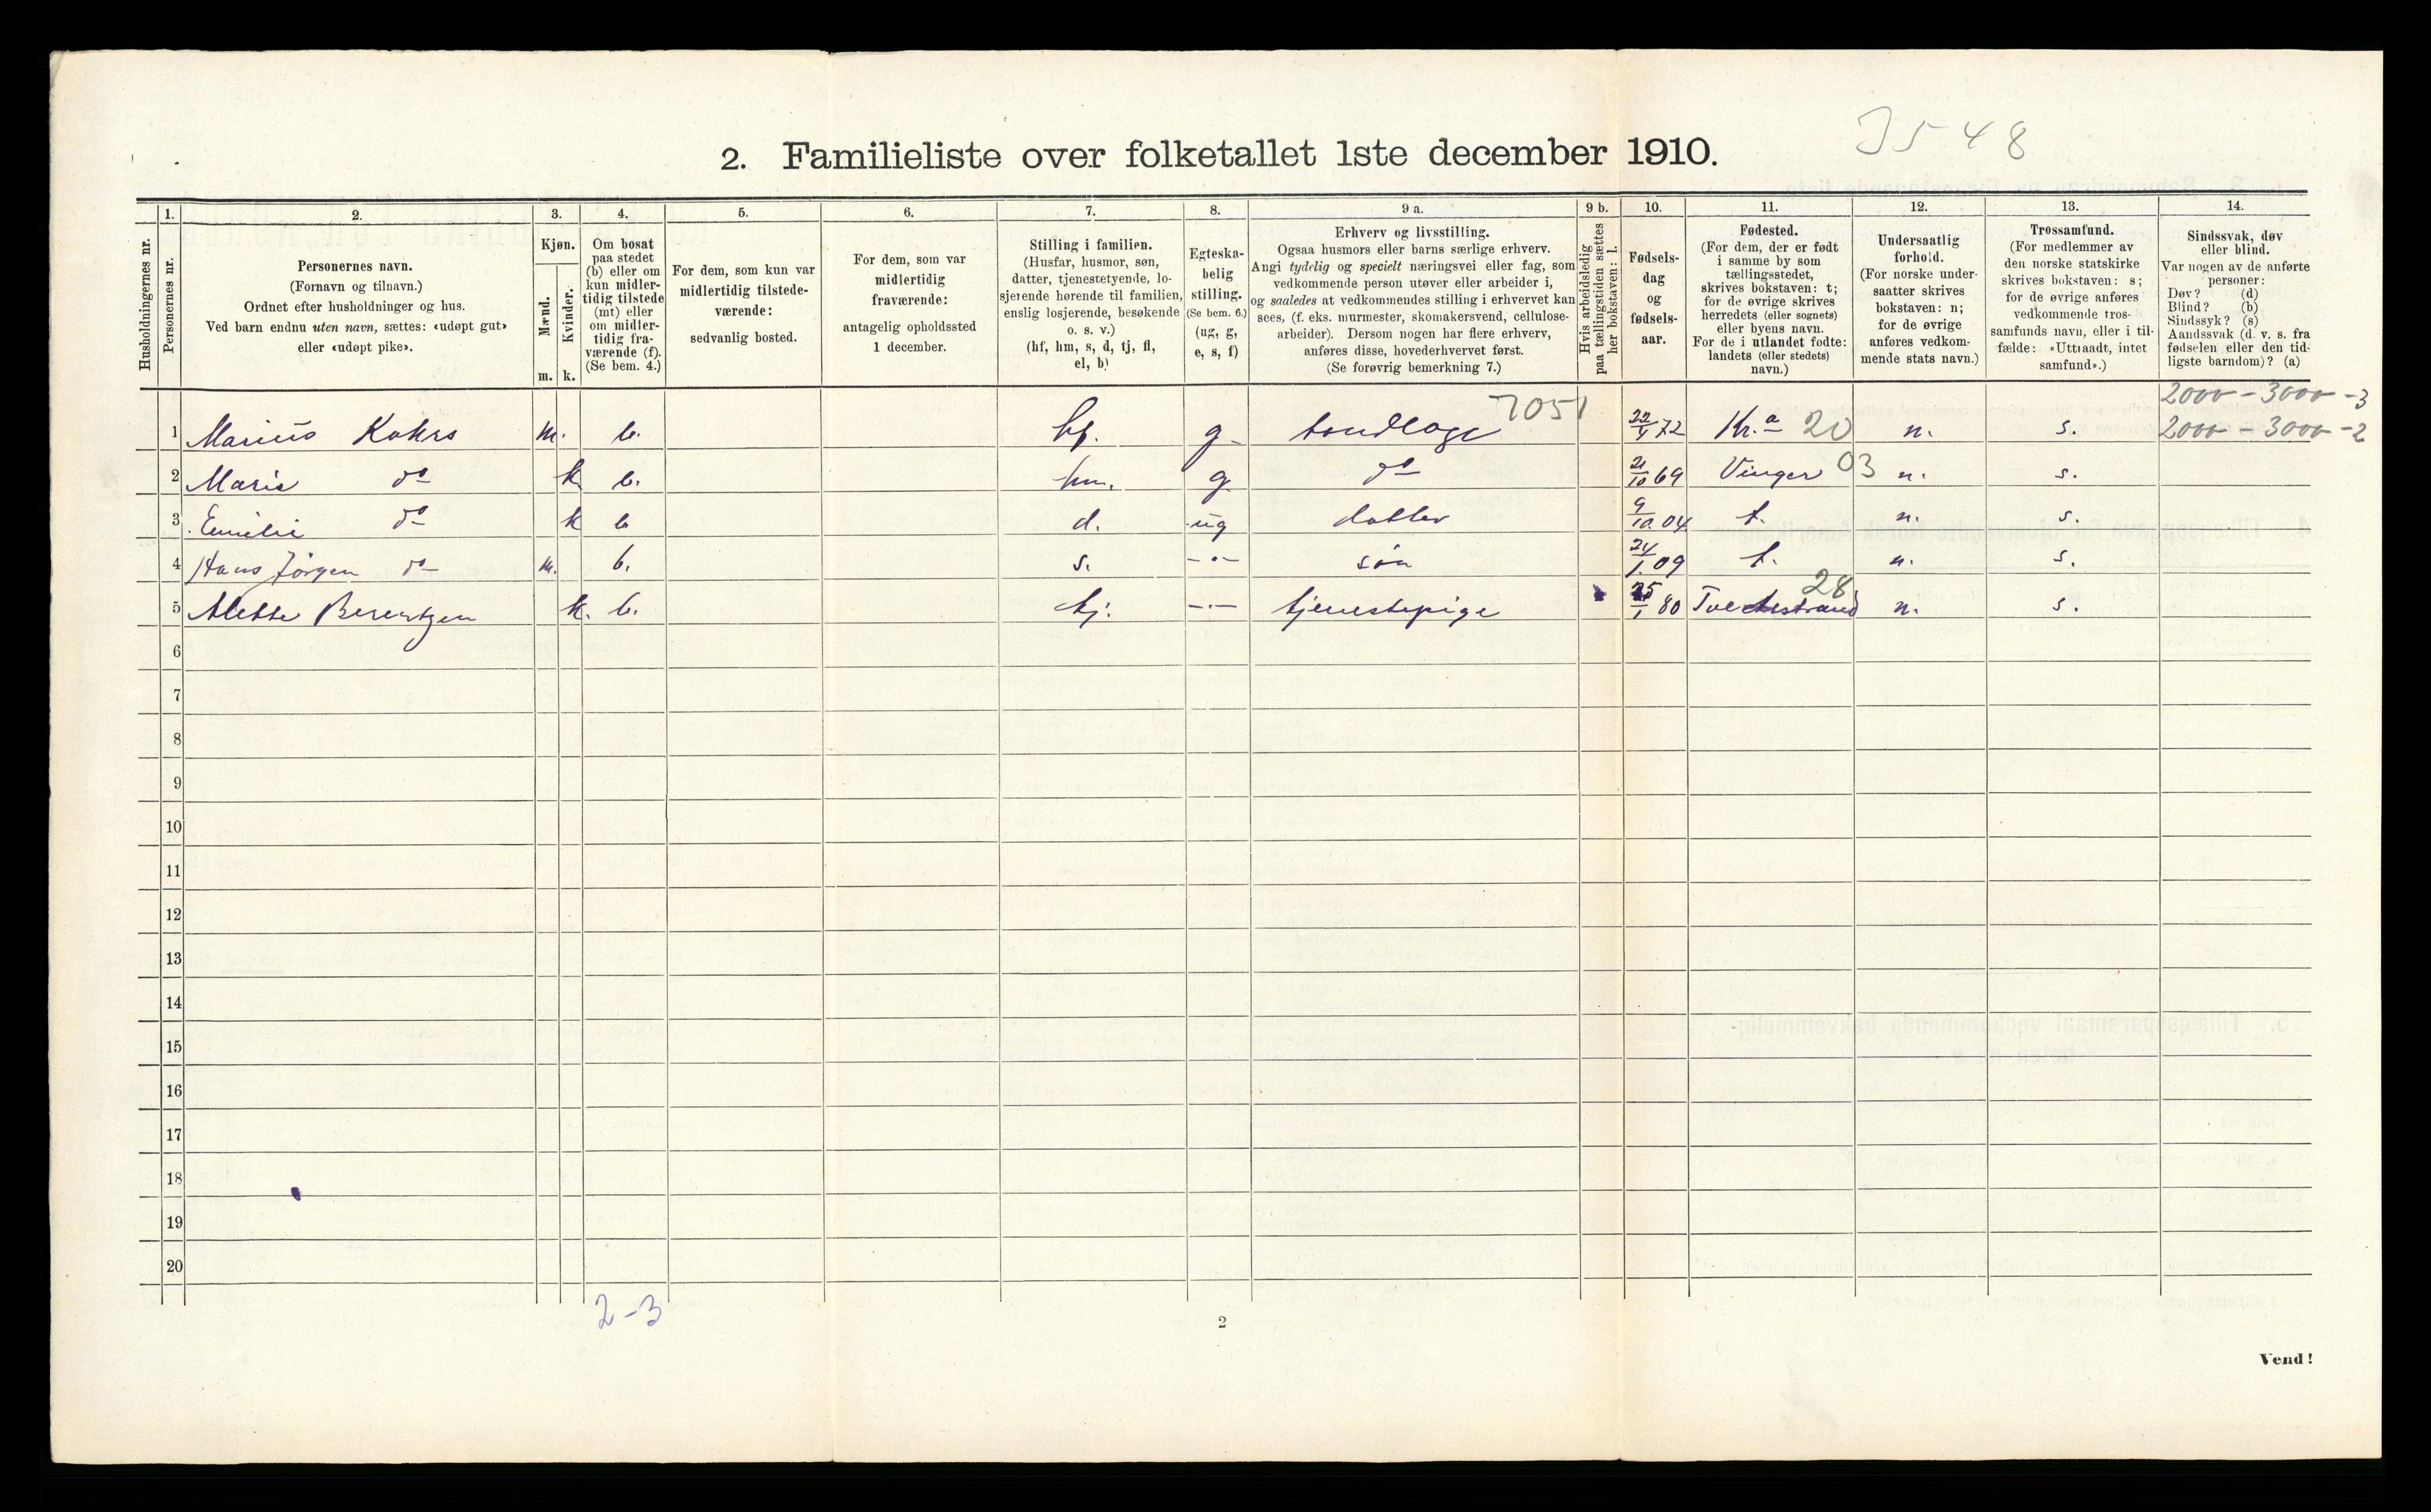 J548
2. Familieliste over folketallet 1ste december 1910.
Husholdningernes nr.
1.
Personernes nr.
2.
Personernes navn.
(Fornavn og tilnavn.)
Ordnet efter husholdninger og hus.
Ved barn endnu uten navn, sættes: «udøpt gut»
eller «udøpt pike».
3.
Kjøn.
Mænd.
Kvinder.
m. k.
4.
Om bosat
paa stedet
(b) eller om
kun midler-
tidig tilstede
(mt) eller
om midler-
tidig fra-
værende (f).
(Se bem. 4.)
5.
For dem, som kun var
midlertidig tilstede-
værende:
sedvanlig bosted.
6.
For dem, som var
midlertidig
fraværende:
antagelig opholdssted
1 december.
7.
Stilling i familien.
(Husfar, husmor, søn,
datter, tjenestetyende, lo-
sjerende hørende til familien,
enslig losjerende, besøkende
o. s. v.)
(hf, hm, s, d, tj, fl,
el, b)
8.
Egteska-
belig
stilling.
(Se bem. 6.)
(ug, g,
e, s, f)
9 a.
Erhverv og livsstilling.
Ogsaa husmors eller barns særlige erhverv.
Angi tydelig og specielt næringsvei eller fag, som
vedkommende person utøver eller arbeider i,
og saaledes at vedkommendes stilling i erhvervet kan
sees, (f. eks. murmester, skomakersvend, cellulose-
arbeider). Dersom nogen har flere erhverv,
anføres disse, hovederhvervet først.
(Se forøvrig bemerkning 7.)
9 b.
Hvis arbeidsledig
paa tællingstiden sættes
her bokstaven: l.
10.
Fødsels-
dag
og
fødsels-
aar.
11.
Fødested.
(For dem, der er født
i samme by som
tællingsstedet,
skrives bokstaven: t;
for de øvrige skrives
herredets (eller sognets)
eller byens navn.
For de i utlandet fødte:
landets (eller stedets)
navn.)
12.
Undersaatlig
forhold.
(For norske under-
saatter skrives
bokstaven: n;
for de øvrige
anføres vedkom-
mende stats navn.)
13.
Trossamfund.
(For medlemmer av
den norske statskirke
skrives bokstaven: s;
for de øvrige anføres
vedkommende tros-
samfunds navn, eller i til-
fælde: «Uttraadt, intet
samfund».)
14.
Sindssvak, døv
eller blind.
Var nogen av de anførte
personer:
Døv? (d)
Blind? (b)
Sindssyk? (s)
Aandssvak (d. v. s. fra
fødselen eller den tid-
ligste barndom)? (a)
7051 2000 - 3000 - 3
1 Marius Kohrs m. b. hf. g. tandlæge 22/4 72 Kr.a 20 n. s. 2000 - 3000 - 2
2 Marie do k. b. hm. g. do 21/10 69 Vinger 03 n. s.
3 Emilie do k b d. ug datter 9/10 04 t. n. s.
4 Hans Jörgen do m. b. s. -"- søn 24/1 09 t. n. s.
5 Alette Berentzen k. b. tj. -"- tjenestepige 25/1 80 Tvedestrand 28 n. s.
6
7
8
9
10
11
12
13
14
15
16
17
18
19
20
2-3
2
Vend!